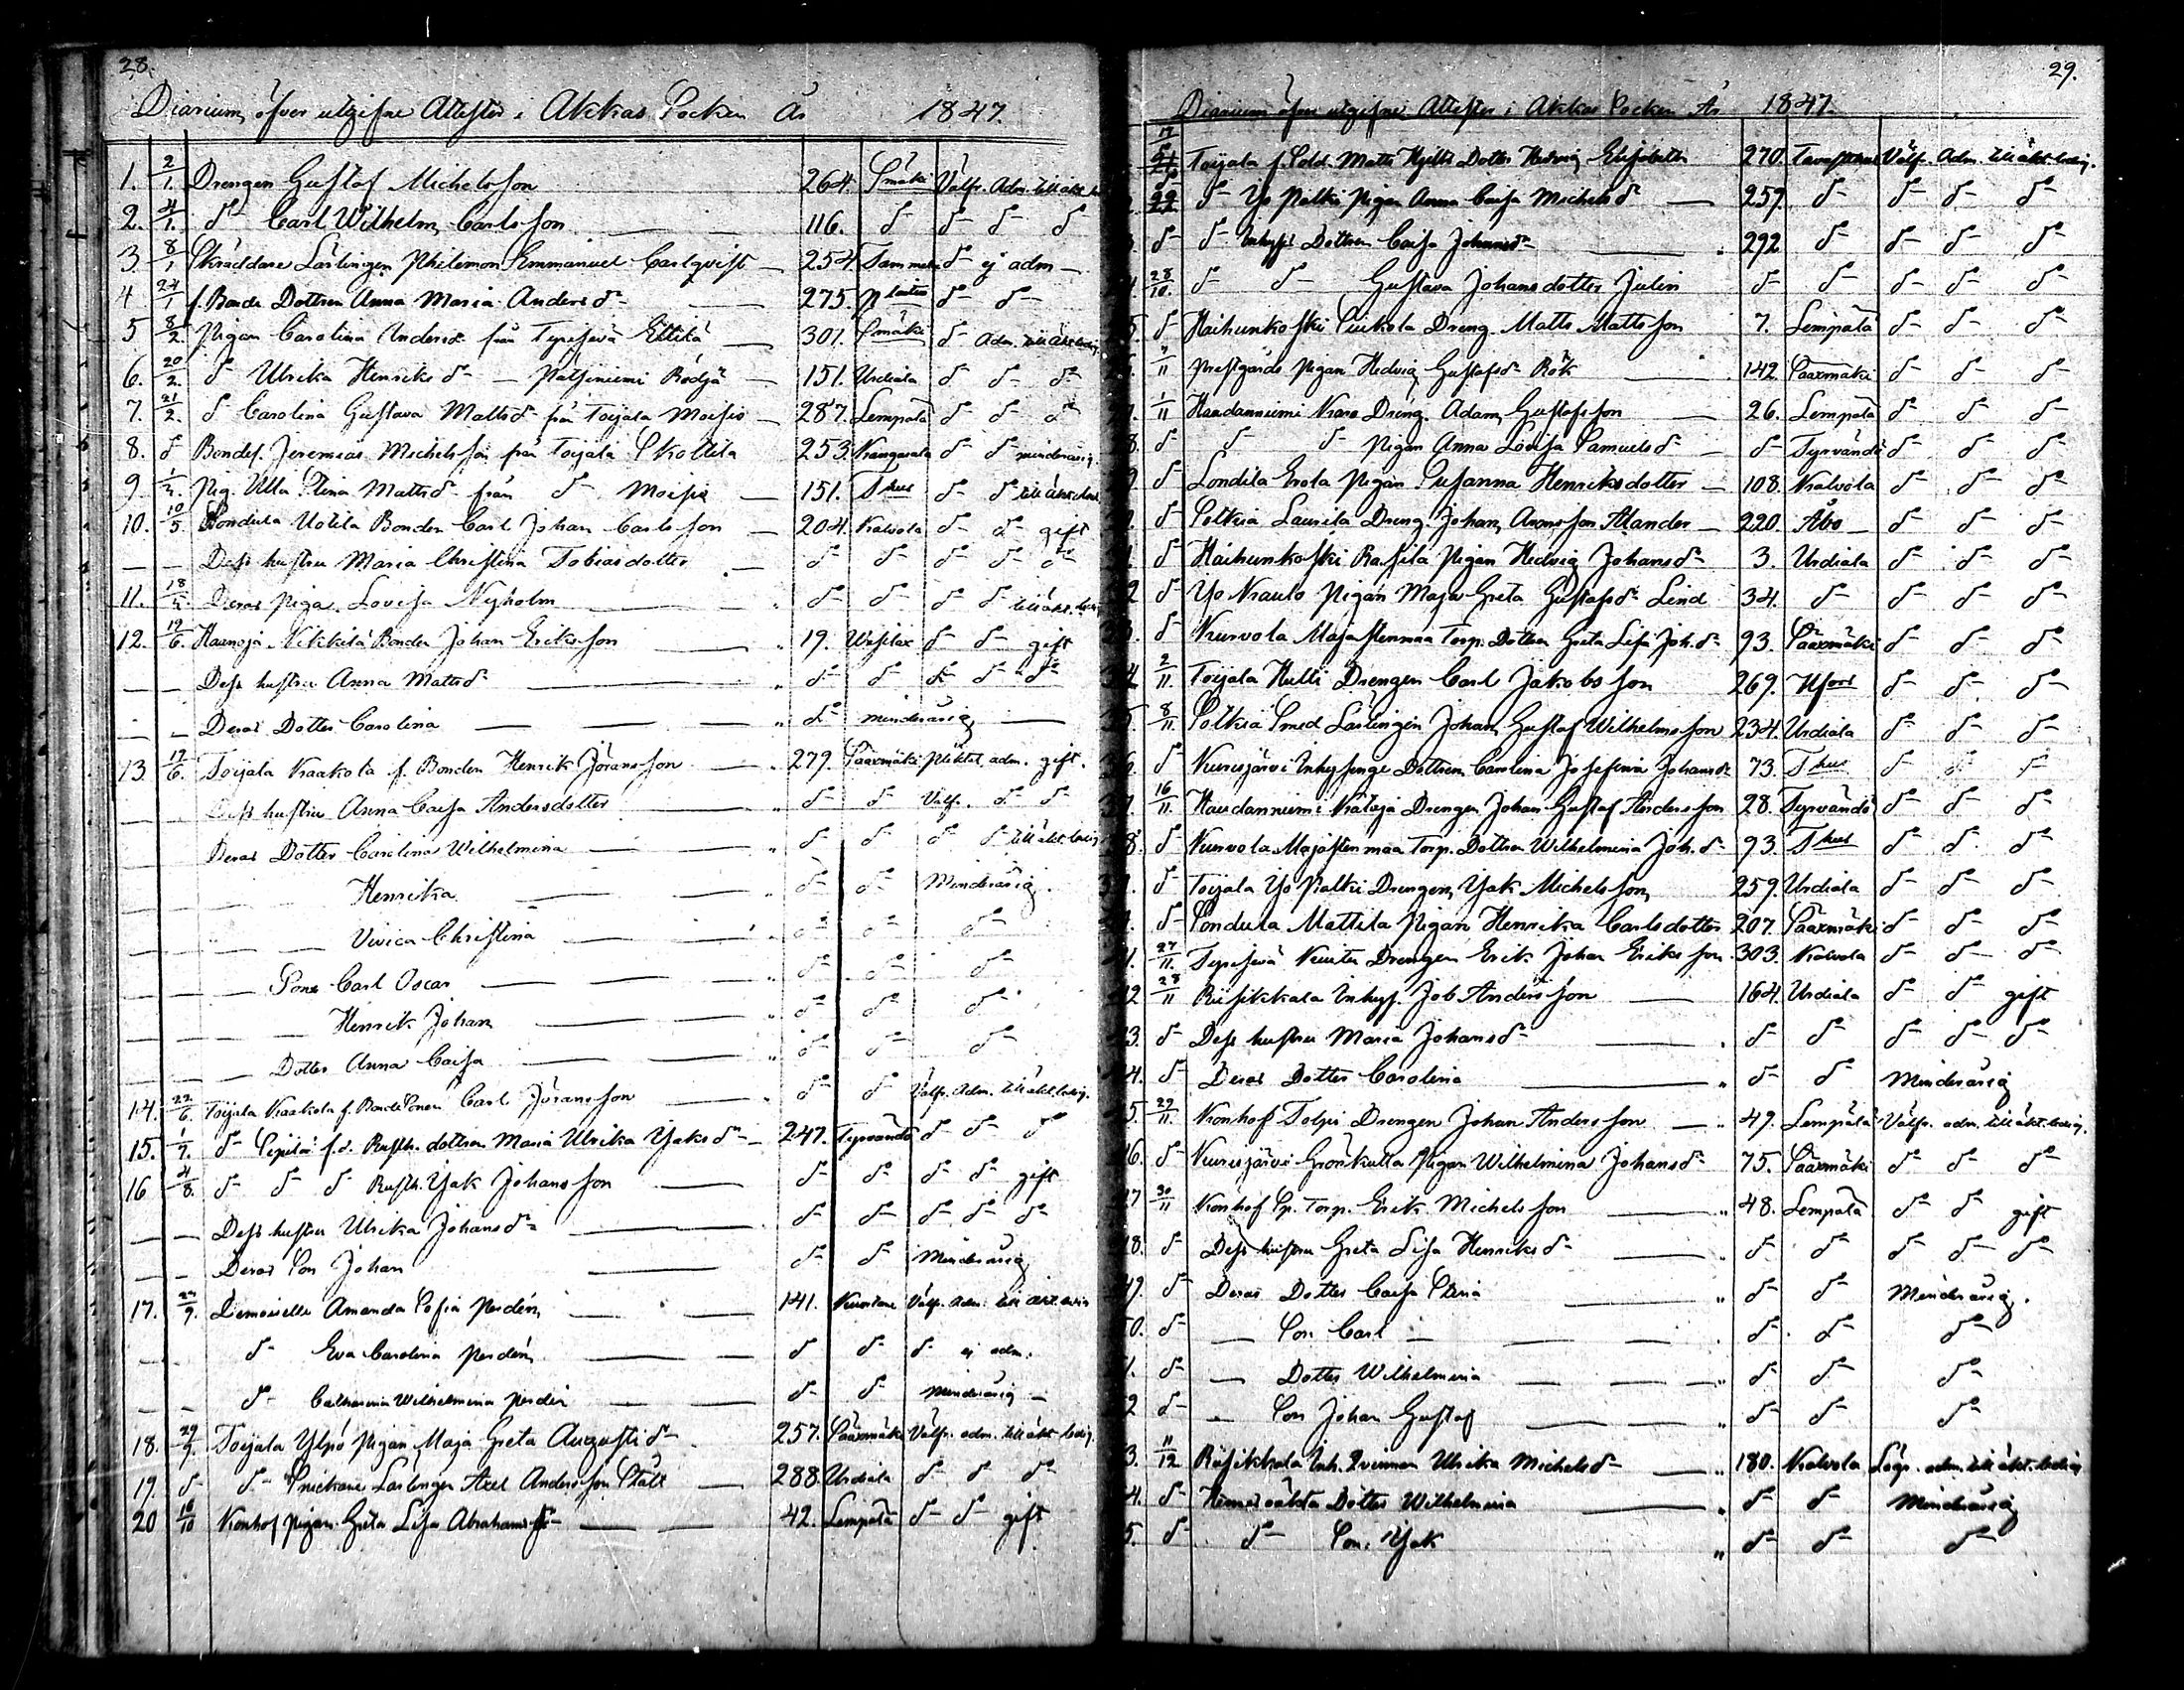 28.
Diarium öfver utgifne Attester i Akkas Socken År 1847.
1. 2/1. Drengen Gustaf Michelsson 264. Smäki Välfr. Adm. till äkt.
2. 4/1. do Carl Wilhelm Carlsson 116. do do do do
3. 8/1 Skräddare Lärlingen Philemon Emmanuel Carlqvist 254. Tammela do ej adm
4 24/1 f. Bonde Dottren Anna Maria Andersdr 275. do do
5 8/2. Pigan Carolina Andersdr från Terisjevä Ettilä 301. Smäki do Adm. till äkt. ledig
6. 20/2. do Ulrika Henriksdr Patsiniemi Rödjä 151. Urdiala do do do
7. 21/2. do Carolina Gustava Mattsdr från Toijala Moisio 287. Lempälä do do do
8. do Bondes. Jeremias Michelsson från Toijala Skottila 253. Kangasala do do minderårig.
9. Pig. Ulla Stina Mattsdr från do Moisio 151. Thus do do till äkt.
10. 10/5. Sondula Uotila Bonden Carl Johan Carlsson 204. Kalvola do do gift
Dess hustru Maria Christina Tobiasdotter do do do do do
11. Deras Piga Lovisa Nyholm do do do do till äkt. ledig
12. 19/6. Haanoja Nikkilä Bonden Johan Eriksson 19. Wesilax do do gift
Dess hustru Anna Mattsdr do do do do do
Deras Dotter Carolina do minderårig
13. 19/6. Toijala Kaakola f. Bonden Henrik Jöransson 279. Sääxmäki Plikted. adm. gift.
Dess hustru Anna Caisa Andersdotter do do Välfr. do do
Deras Dotter Carolina Wilhelmina do do do do till äkt. ledig
Henrika do do Minderårig.
Vivica Christina do do do
Sone Carl Oscar do do do
Henrik Johan do do do
Dotter Anna Caisa do do do
14. 22/6. Toijala Kaakola f. Bonde Sonen Carl Jöransson do do Välfr. Adm. till äkt. ledig.
15. 1/7. do Sipilä f.d. Rusth. dottren Maria Ulrika Jaksdr 247. Tyrvändö do do do
16 4/8. do do do Rusth. Jak Johansson do do do do gift
Dess hustru Ulrika Johansdr do do do do do
Deras Son Johan do do Minderårig
17. Demoiselle Amanda Sofia Perdén 141. Välfr. Adm. till äkt. ledig
do Eva Carolina Perdén do do do ej adm.
do Catharina Wilhelmina Perdén do do minderårig
18. Toijala Ylpö Pigan Maja Greta Augustidr 257. Sääxmäki Välfr. adm. till äkt. ledig.
19. do do Snickare Lärlingen Axel Andersson Stält 288. Urdiala do do do
20 16/10 Konhof Pigan Greta Lisa Abrahamsdr 42. Lempälä do do gift
29.
Diarium öfver utgifne Attester i Akkas Socken År 1847.
Toijala f. Sold. Matts Hjelts Dotter Hedvig Elisabeth 270. Välfr. Adm. till äkt. ledig.
do Yo Paltti Pigan Anna Caisa Michelsdr 259. do do do do
do do Inhyses Dottren Caisa Johansdr 292 do do do do
28/10. do do Gustava Johansdotter Julin do do do do do
5. do Haihunkoski Siukola Dreng. Matts Mattsson 7. Lempälä do do do
11 Prestgårds Pigan Hedvig Gustafsdr Rök 142 Sääxmäki do do do
1/11 Haudanniemi Dreng. Adam Gustafsson 26. Lempälä do do do
8. do do do Pigan Anna Lovisa Samuelsdr do Tyrvändö do do do
9. do Sondila Erola Pigan Susanna Henriksdotter 108. Kalvola do do do
do Sotkia Laurila Dreng. Johan Aronsson Alander 220. Åbo do do do
1. do Haihunkoski Rasila Pigan Hedvig Johansdr 3. Urdiala do do do
2 do Yo Krauls Pigan Maja Greta Gustafsdr Lind 34. do do do do
do Kurvola Majastenmaa Torp. Dottren Greta Lisa Joh.dr 93. Sääxmäki do do do
4 2/11. Toijala Hulli Drengen Carl Jakobsson 269. Hfors do do do
5. 8/11. Sotkia Smed Lärlingen Johan Gustaf Wilhelmsson 234. Urdiala do do do
do Kurisjärvi Inhysinge Dottren Carolina Josefina Johansdr 73. Thus do do do
16/11. Haudanniemi Kätöjä Drengen Johan Gustaf Andersson 28. Tyrvändö do do do
8. do Kurvola Majastenmaa Torp. Dottren Wilhelmina Joh.dr 93. Thus do do do
do Toijala Yo Paltti Drengen Jak Michelsson 259. Urdiala do do do
do Sondula Mattila Pigan Henrika Carlsdotter 207. Sääxmäki do do do
1. 27/11. Terisjevä Drengen Erik Johan Eriksson 303. Kalvola do do do
2 28/11 Riisikkala Inhys. Job Andersson 164. Urdiala do do gift
3. do Dess hustru Maria Johansdr do do do do do
4. do Deras Dotter Carolina do do Minderårig
5. 29/11. Konhof Tolpi Drengen Johan Andersson 49. Lempälä Välfr. adm. till äkt. ledig.
6. do Kurisjärvi Grönkulla Pigan Wilhelmina Johansdr 75. Sääxmäki do do do
7 30/11 Konhof Sp. Torp. Erik Michelsson 48. Lempälä do do gift
8. do Dess hustru Greta Lisa Henriksdr do do do do do
49. do Deras Dotter Caisa Stina do do Minderårig.
0. do Son Carl do do do
1. do Dotter Wilhelmina do do do
2 do Son Johan Gustaf do do do
3. 11/12 Riisikkala Inh. Qvinnan Ulrika Michelsdr 180. Kalvola adm. till äkt. ledig
4. do Hennes oäkta Dotter Wilhelmina do do Minderårig
5. do do Son Jak do do do